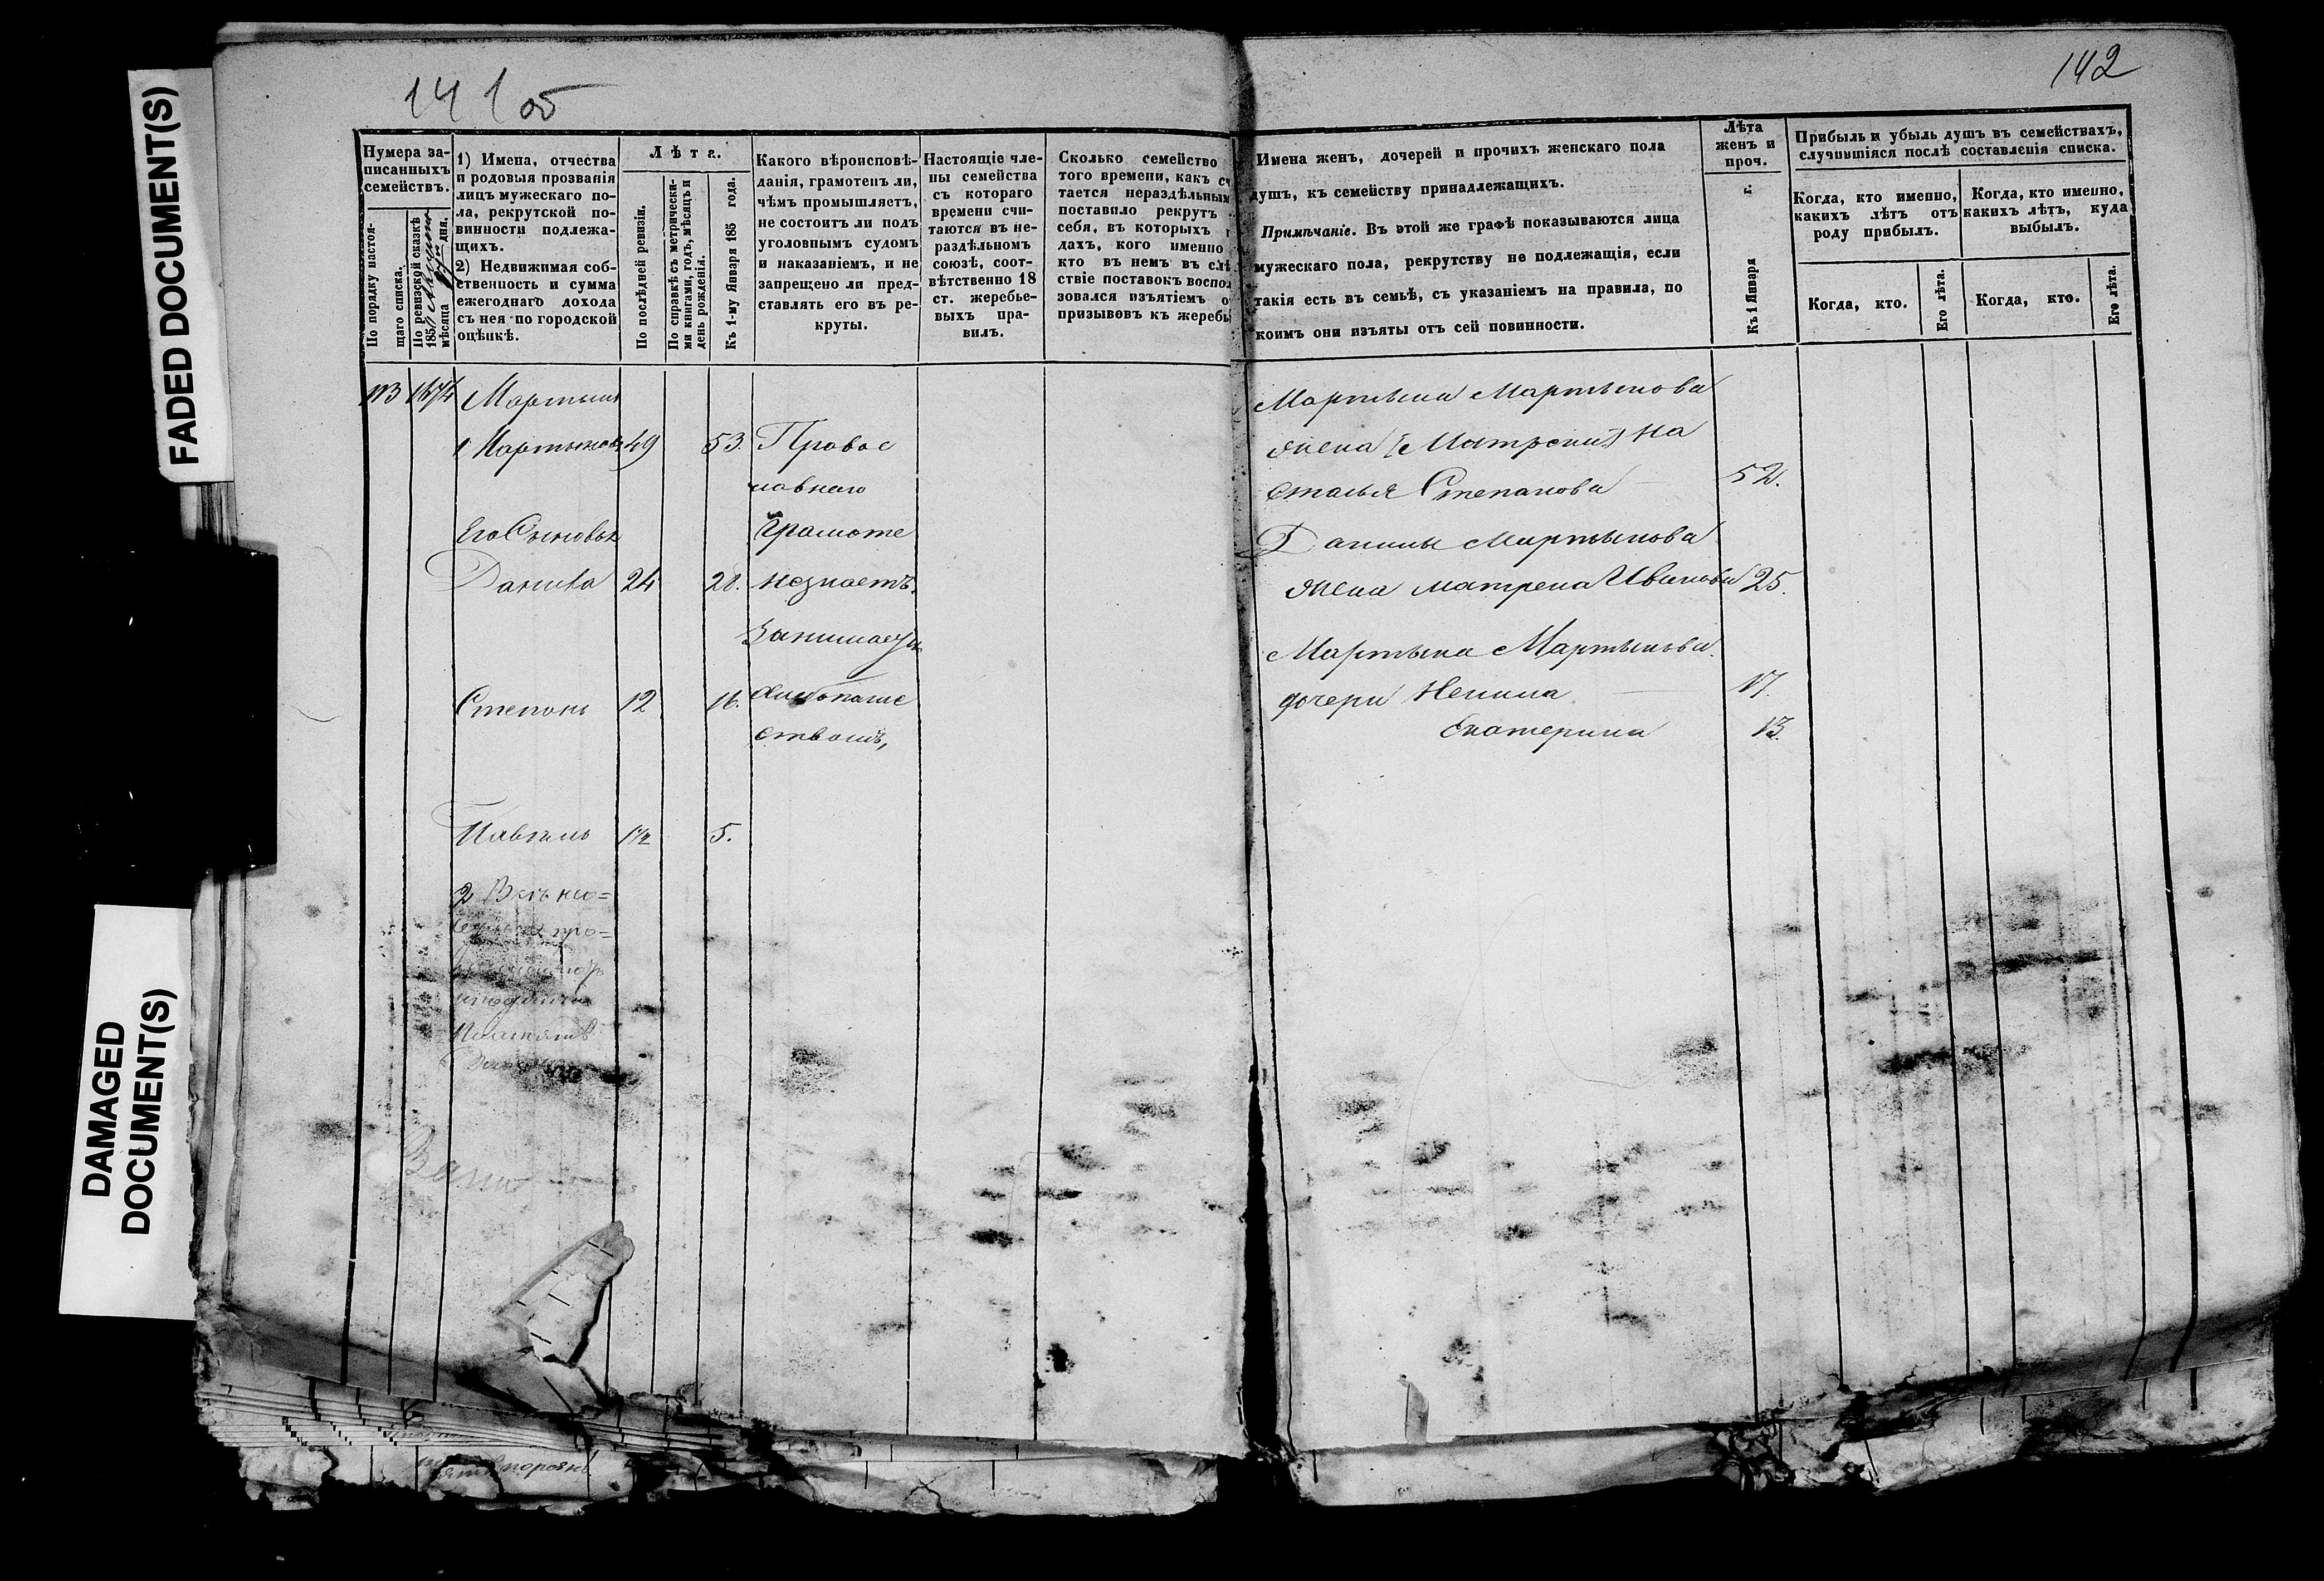 FADED DOCUMENT(S)
DAMAGED
DOCUMENT(S)
141 об
Нумера за-
писанныхъ
семействъ.
По порядку настоя-
щаго списка.
По ревизской сказкѣ
185
мѣсяца дня.
1) Имена, отчества
и родовыя прозванія
лицъ мужескаго по-
ла, рекрутской по-
винности подлежа-
щихъ.
2) Недвижимая соб-
ственность и сумма
ежегоднаго дохода
съ нея по городской
оцѣнкѣ.
Лѣта.
По послѣдней ревизіи.
По справкѣ съ метрически-
ми книгами, годъ, мѣсяцъ и
день рожденія.
Къ 1-му Января 185 года.
Какого вѣроисповѣ-
данія, грамотенъ ли,
чѣмъ промышляетъ,
не состоитъ ли подъ
уголовнымъ судомъ
и наказаніемъ, и не
запрещено ли пред-
ставлять его въ ре-
круты.
Настоящіе чле-
ны семейства
съ котораго
времени счи-
таются въ не-
раздѣльномъ
союзѣ, соот-
вѣтственно 18
ст. жеребье-
выхъ пра-
вилъ.
Сколько семейство
того времени, какъ сч
тается нераздѣльным
поставило рекрутъ
себя, въ которыхъ г
дахъ, кого именно
кто въ немъ въ слѣ
ствіе поставокъ воспол
зовался изъятіемъ о
призывовъ къ жеребь
113 Мартынъ
1 Мартыновъ 49 53. Правос
лавнаго
Его Сыновья грамоте
Данила 24 28. незнаетъ.
Занимаетъя
Степанъ 12 16. хлебопаше
ствомъ,
Павелъ 1½ 5.
2
142
Имена женъ, дочерей и прочихъ женскаго пола
душъ, къ семейству принадлежащихъ.
Примѣчаніе. Въ этой же графѣ показываются лица
мужескаго пола, рекрутству не подлежащія, если
такія есть въ семьѣ, съ указаніемъ на правила, по
коимъ они изъяты отъ сей повинности.
Лѣта
женъ и
проч.
Къ 1 Января г.
Прибыль и убыль душъ въ семействахъ,
случившіяся послѣ составленія списка.
Когда, кто именно,
какихъ лѣтъ отъ
роду прибылъ.
Когда, кто именно,
какихъ лѣтъ, куда
выбылъ.
Когда, кто.
Его лѣта.
Когда, кто.
Его лѣта.
Мартына Мартынова
жена На
сталья Степанова 52.
Данилы Мартынова
жена матрена Иванова 25.
Мартына Мартынова
дочери Ненила 17.
Екатерина 13.